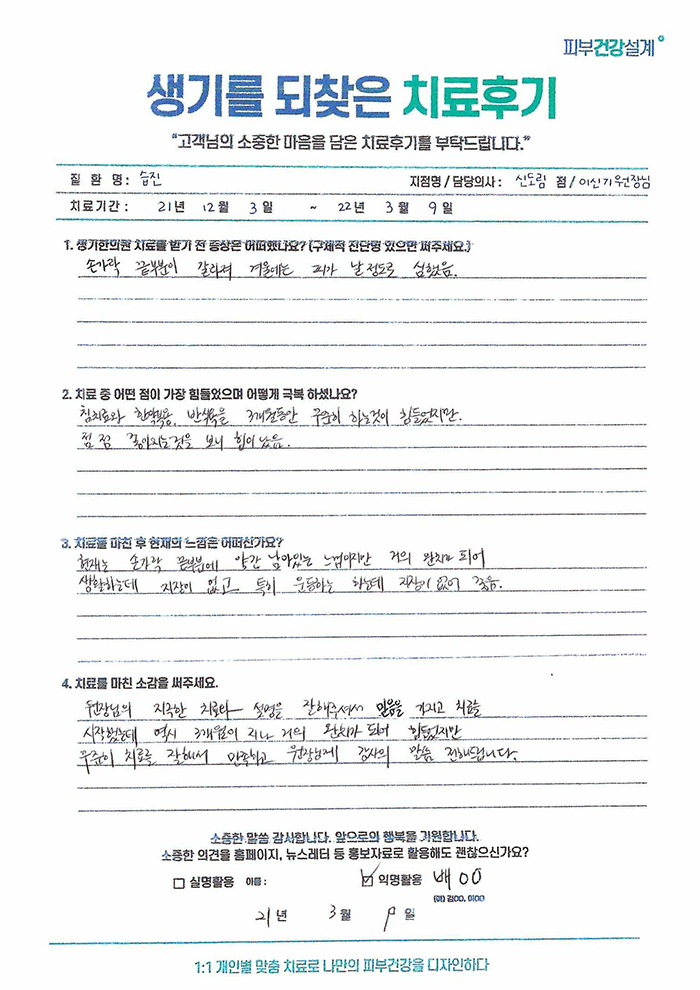 피부건강설계
생기를 되찾은 치료후기
"고객님의 소중한 마음을 담은 치료후기를 부탁드립니다."
질 환 명 : 습진 지점명 / 담당의사 : 신도림 점 / 이신기 원장님
치료기간 : 21년 12월 3일 ~ 22년 3월 9일
1. 생기한의원 치료를 받기 전 증상은 어떠했나요? (구체적 진단명 있으면 써주세요.)
손가락 끝부분이 갈라져 겨울에는 피가 날 정도로 심했음.
2. 치료 중 어떤 점이 가장 힘들었으며 어떻게 극복 하셨나요?
침치료와 한약복용, 반식욕을 3개월동안 꾸준히 하는것이 힘들었지만.
점점 좋아지는것을 보니 힘이 났음.
3. 치료를 마친 후 현재의 느낌은 어떠신가요?
현재는 손가락 끝부분에 약간 남아있는 느낌이지만 거의 완치가 되어
생활하는데 지장이 없고 특히 운동하는 하는데 지장이 없어 좋음.
4. 치료를 마친 소감을 써주세요.
원장님의 지극한 치료와 설명을 잘해주셔서 믿음을 가지고 치료를
시작했는데 역시 3개월이 지나 거의 완치가 되어 힘들었지만
꾸준히 치료를 잘해서 만족하고 원장님께 감사의 말씀 전해드립니다.
소중한 말씀 감사합니다. 앞으로의 행복을 기원합니다.
소중한 의견을 홈페이지, 뉴스레터 등 홍보자료로 활용해도 괜찮으신가요?
실명활용 이름 : 익명활용 배OO
(예) 김OO, 이OO
21년 3월 9일
1:1 개인별 맞춤 치료로 나만의 피부건강을 디자인하다